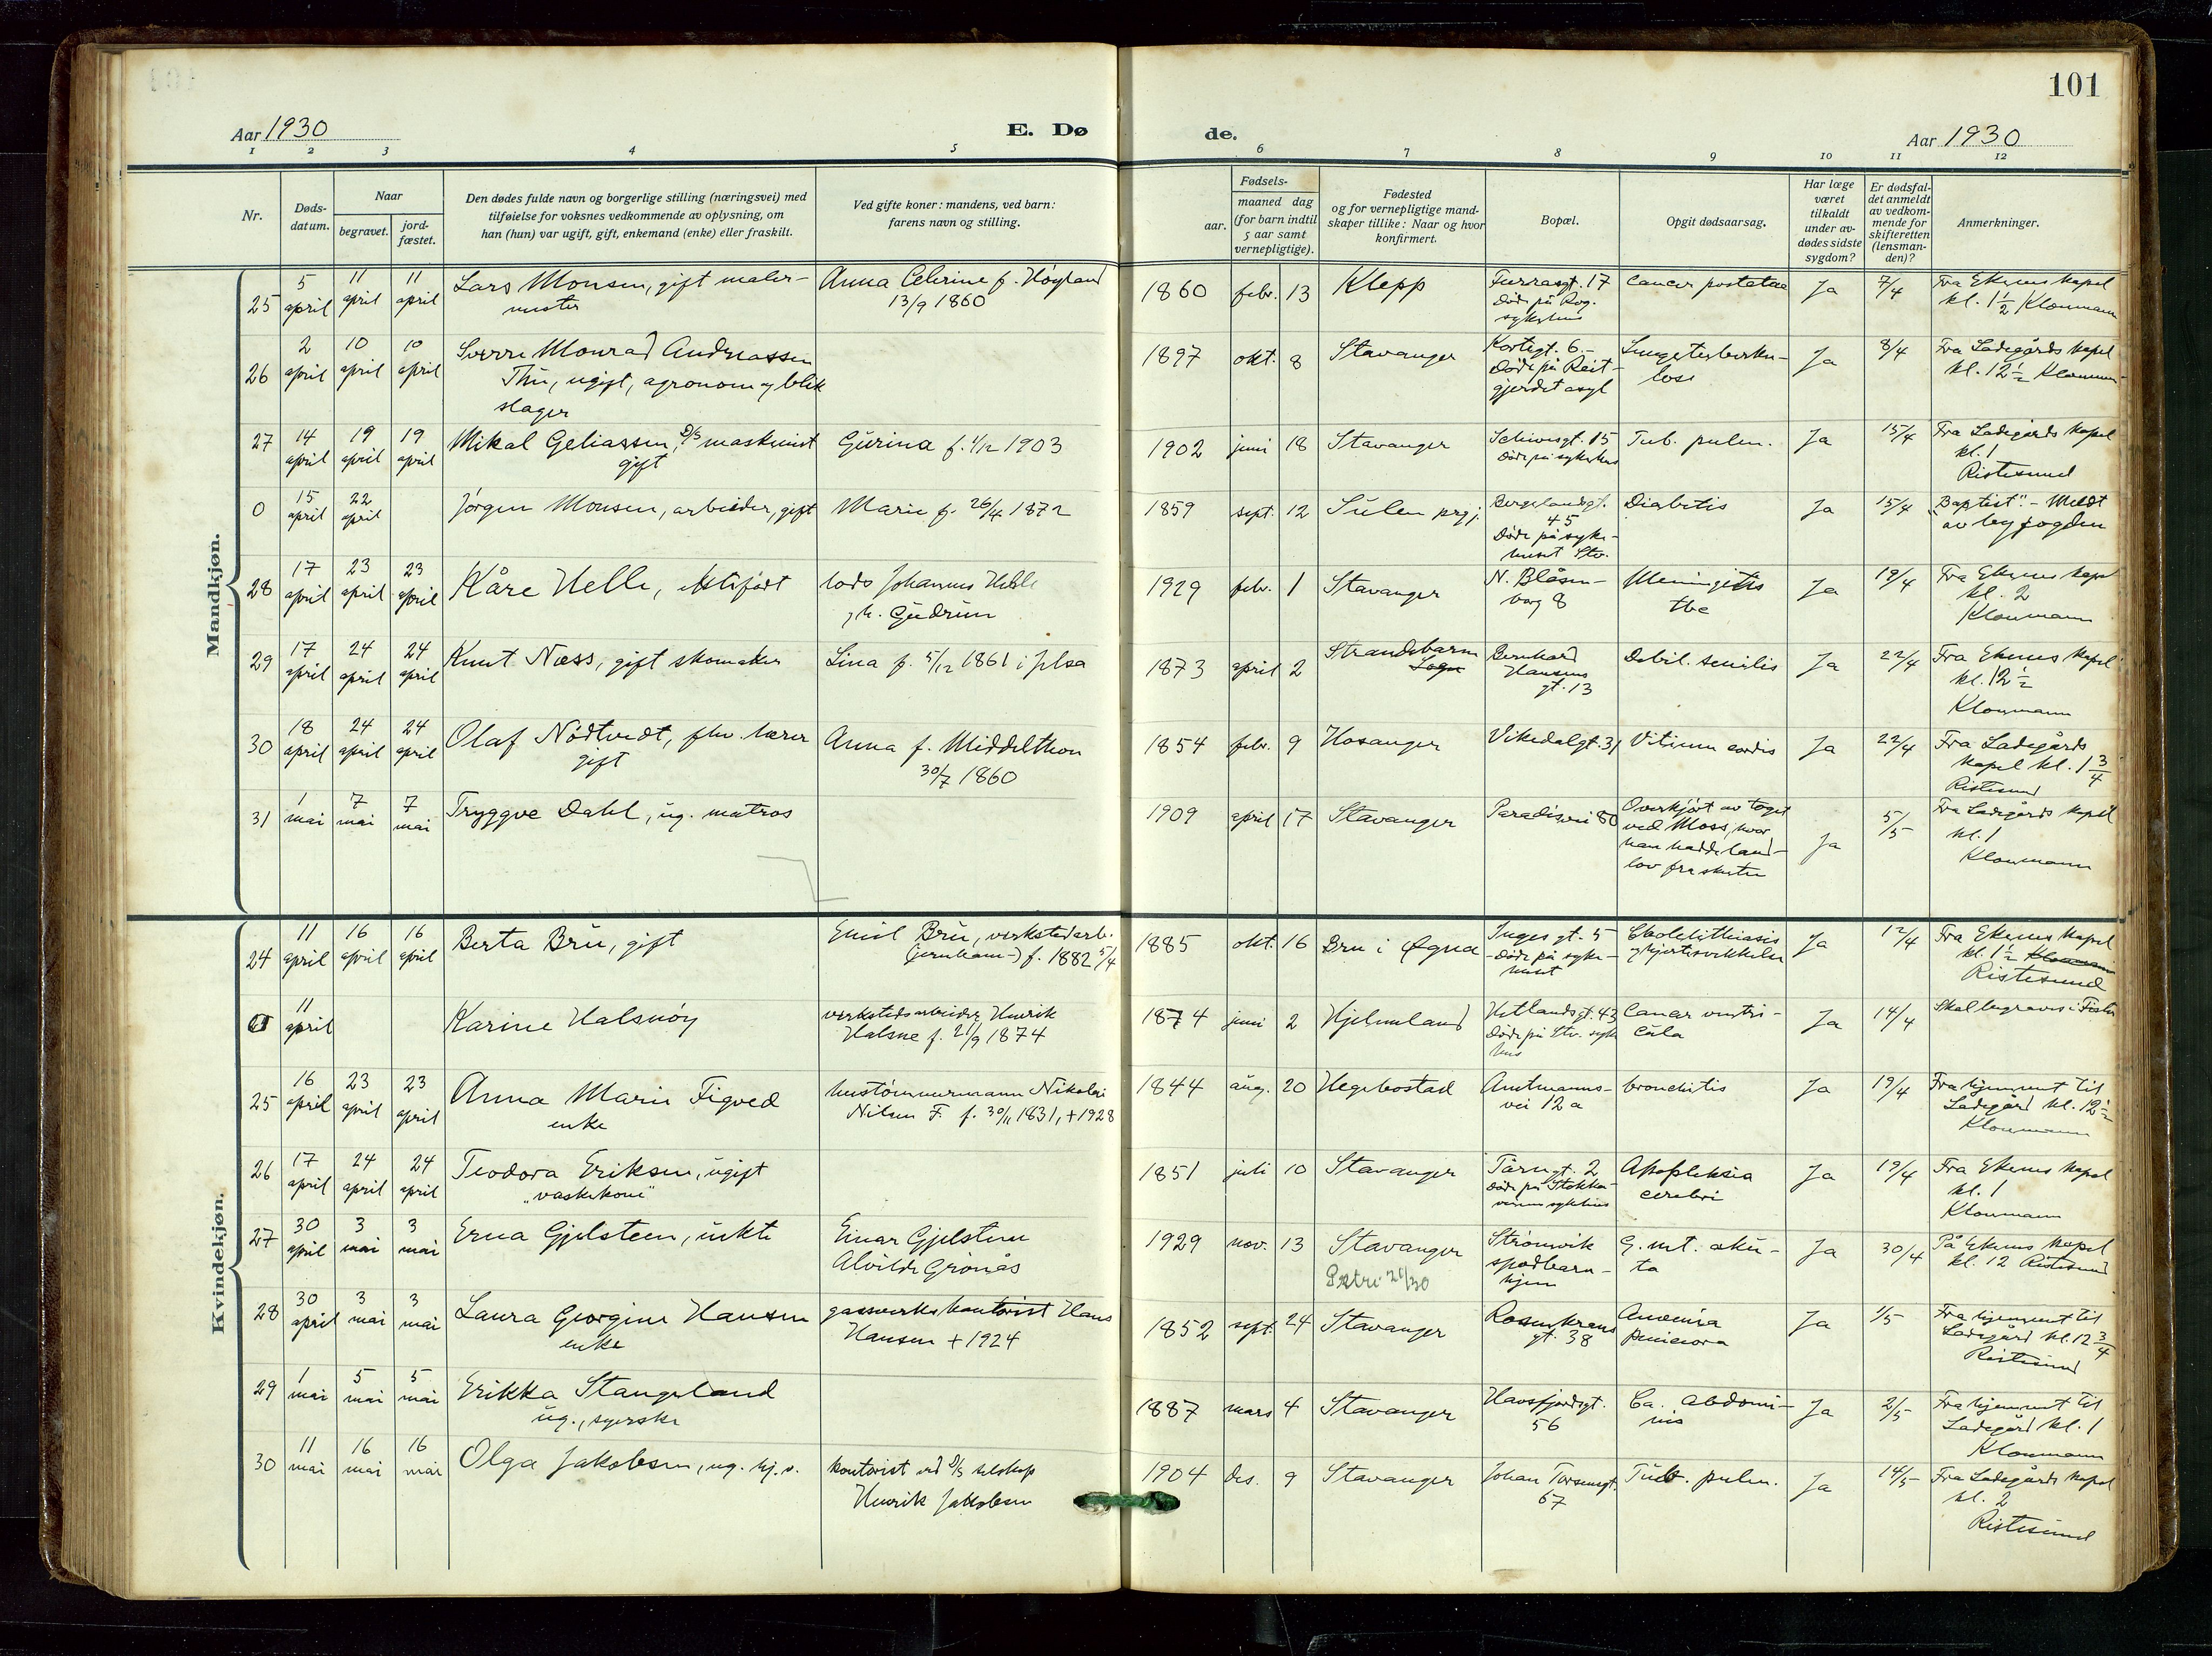 101
Aar 1930
E. Dø
de.
Aar 1930
1 2 3 4 5 6 7 8 9 10 11 12
Nr.
Døds-
datum.
Naar
begravet.
jord-
fæstet.
Den dødes fulde navn og borgerlige stilling (næringsvei) med
tilføielse for voksnes vedkommende av oplysning, om
han (hun) var ugift, gift, enkemand (enke) eller fraskilt.
Ved gifte koner: mandens, ved barn:
farens navn og stilling.
Fødsels-
aar.
maaned dag
(for barn indtil
5 aar samt
vernepligtige).
Fødested
og for vernepligtige mand-
skaper tillike: Naar og hvor
konfirmert.
Bopæl.
Opgit dødsaarsag.
Har læge
været
tilkaldt
under av-
dødes sidste
sygdom?
Er dødsfal-
det anmeldt
av vedkom-
mende for
skifteretten
(lensman-
den)?
Anmerkninger.
Mandkjøn.
25 5 april 11 april 11 april Lars Monsen, gift maler-
mester
Anna f. Høyland
13/9 1860
1860 febr. 13 Klepp
17
Døde på Rog.
sykehus
Cancer postatae Ja 7/4
Fra Ekenes kapel
kl. 1 1/2 Kloumann
26 2 april 10 april 10 april Sverre Monrad Andreassen
Thu, ugift, agronom og blik
slager
1897 okt. 8 Stavanger
6.
Døde på Reit-
gjerdet asyl
Lungetuberku-
lose
Ja 8/4
Fra Ladegårds kapel
kl. 12 1/2 Kloumann
27 14 april 19 april 19 april Mikal Geliassen, D/S maskinist
gift
Gurina f. 1/12 1903
1902 juni 18 Stavanger
15
Døde på sykehus
Tub. pulm. Ja 15/4
Fra Ladegårds kapel
kl. 1
Ristesund
0 15 april 22 april Jørgen Monsen, arbeider, gift
Marie f. 26/4 1872
1859 sept. 12 Sulen prgj.
Bergelandsgt.
45
Døde på syke-
huset Stv.
Diabetis Ja 15/4
"Baptist" - Meldt
av byfogden
28 17 april 23 april 23 april Kåre Helle, ektefødt
lods Johannes Helle
h. Gudrun
1929 febr. 1 Stavanger
N. Blåsen-
borg 8
Meningitis
tbc
Ja 19/4
Fra Ekenes kapel
kl. 2
Kloumann
29 17 april 24 april 24 april Knut Næss, gift skomaker
Lina f. 5/12 1861 i Jelsa
1873 april 2 Strandebarm
Sogn
Bernhard
Hansens
gt. 13
Debil. senilis Ja 22/4
Fra Ekenes kapel
kl. 12 1/2
Kloumann
30 18 april 24 april 24 april Olaf Nødtvedt, fhv. lærer
gift
Anna f. Middelthon
30/7 1860
1854 febr. 9 Hosanger
Vikedalgt. 31
Vitium cordis Ja 22/4
Fra Ladegårds
kapel kl. 1 3/4
Ristesund
31 1 mai 7 mai 7 mai Tryggve Dahl, ug. matros
1909 april 17 Stavanger
Paradisvei 80
Overkjørt av toget
ved Moss, hvor
han hadde land-
lov fra skuten
Ja 5/5
Fra Ladegårds kapel
kl. 1
Kloumann
Kvindekjøn.
24 11 april 16 april 16 april Berta Bru, gift
Emil Bru, verkstedarb.
(jernbane-) f. 1882 5/4
1885 okt. 16 Bru i Øgna
Inges gt. 5
Døde på syke-
huset
Cholelithiasis
og hjertesvekkelse
Ja 12/4
Fra Ekenes kapel
kl. 1 1/2 Kloumann
Ristesund
0 11 april Karine Halsnøy
verkstedsarbeider Henrik
Halsne f. 21/9 1874
1874 juni 2 Hjelmeland
Hetlandsgt. 43
Døde på Stv. syke
hus
Cancer ventri-
cula
Ja 14/4
Skal begraves i Fister
25 16 april 23 april 23 april Anna Marie Figved
enke
hustømmermann Nikolai
Nilsen F. f. 30/11 1831, + 1928
1844 aug. 20 Hegebostad
Amtmanns-
vei 12a
bronchitis Ja 19/4
Fra hjemmet til
Ladegård kl. 12 1/2
Kloumann
26 17 april 24 april 24 april Teodora Eriksen, ugift
"vaskekone"
1851 juli 10 Stavanger
Tårngt. 2
Døde på Stokka-
sykehus
Apopleksia
cerebri
Ja 19/4
Fra Ekenes kapel
kl. 1
Kloumann
27 30 april 3 mai 3 mai Erna Gjelsteen, uekte
Einar Gjelsteen
Alvilde Grønås
1929 nov. 13 Stavanger
Petri 21/30
Strømvik
spedbarn-
hjem
G. int. aku-
ta
Ja 30/4
På Ekenes kapel
kl. 12 Ristesund
28 30 april 3 mai 3 mai Laura Georgine Hansen
enke
gassverkskontorist Hans
Hansen + 1924
1852 sept. 24 Stavanger
Rosenkrans
gt. 38
Anæmia
Ja 1/5
Fra hjemmet til
Ladegård kl. 12 3/4
Ristesund
29 1 mai 5 mai 5 mai Erikka Stangeland
ug., syerske
1887 mars 4 Stavanger
Havsfjordsgt.
56
Ca. abdomi-
nis
Ja 2/5
Fra hjemmet til
Ladegård kl. 1
Kloumann
30 11 mai 16 mai 16 mai Olga Jakobsen, ug. hj.v.
kontorist ved D/S selskap
Henrik Jakobsen
1904 des. 9 Stavanger
Johan Torsensgt.
67
Tub. pulm. Ja 14/5
Fra Ladegårds kapel
kl. 2
Ristesund